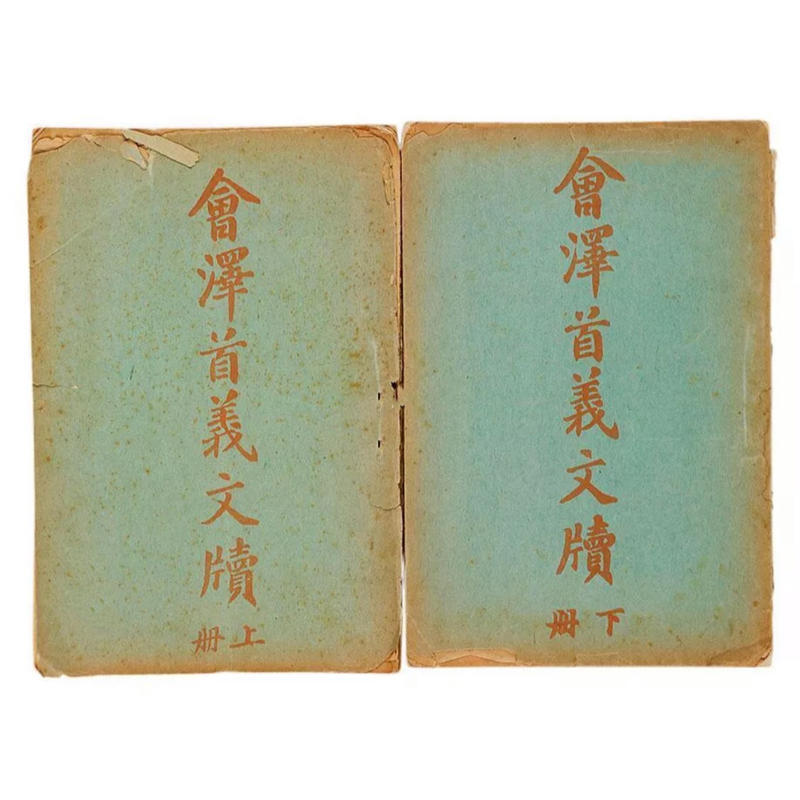 會澤首義文牘
上册
會澤首義文牘
下册